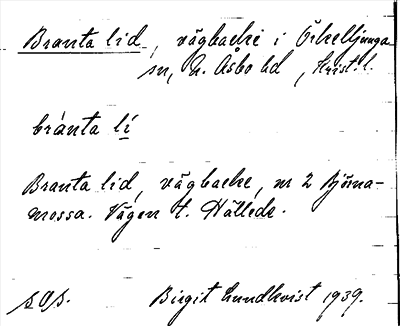 Branta lid, vägbacke i Örkelljunga
sn, N. Åsbo hd, Krist. l.
bránta lí
Branta lid, vägbacke, nr 2 Björna-
mossa. Vägen t. Hällede.
Birgit Lundkvist 1939.